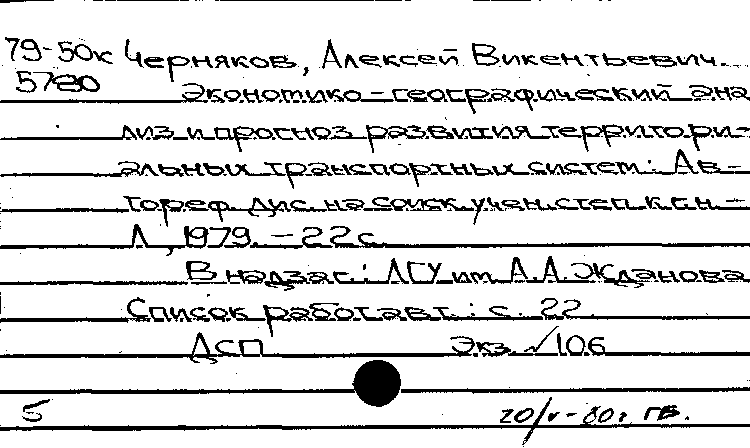 79-50к Черняков, Алексей Викентьевич.
5780 Экономико-географический ана
лиз и прогноз развития территори-
альных транспортных систем: Ав-
тореф. дис. на соиск. учен. степ. к.г.н. -
Л, 1979. - 22 с.
В надзаг.: ЛГУ им. А.А. Жданова
Список работ авт.: с. 22.
ДСП Экз. √106
5 20/V-80г. ГВ.